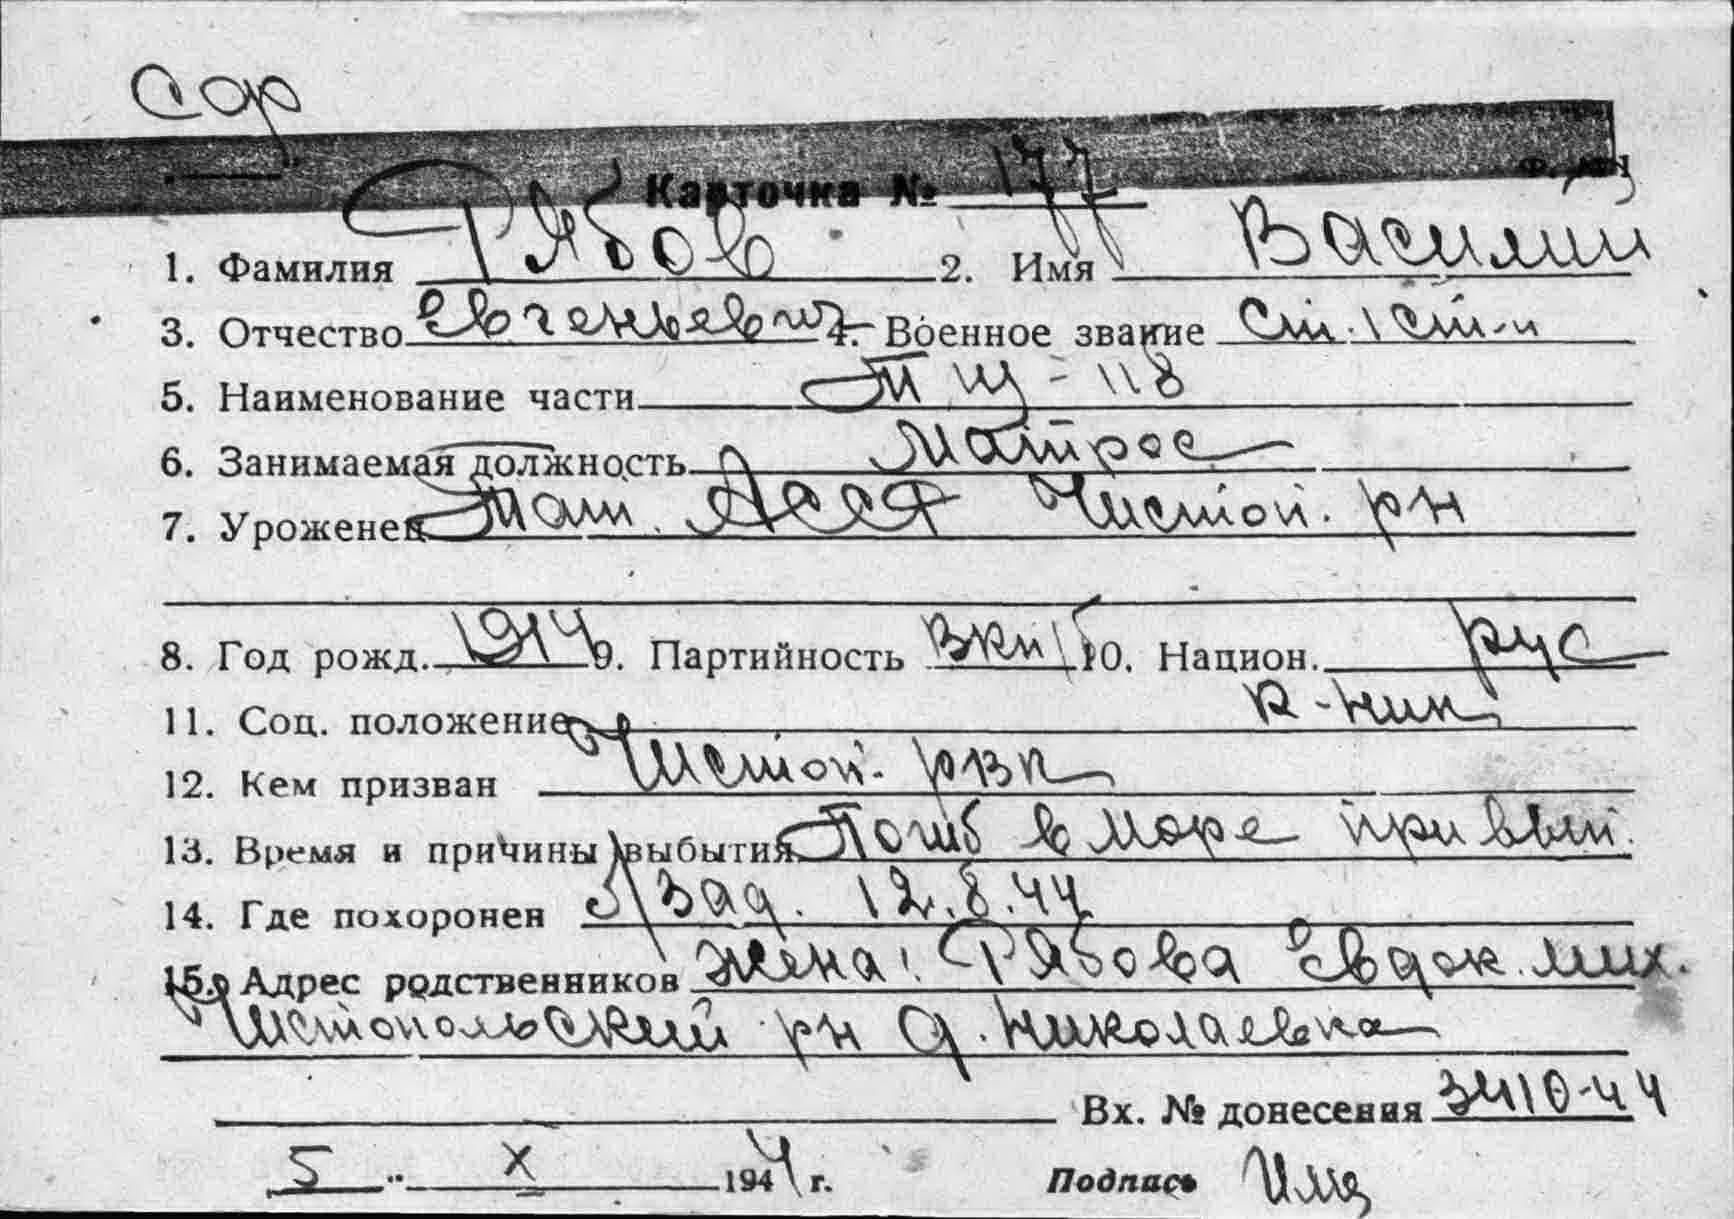 Сар
Карточка № 177 Ф. №
1. Фамилия Рябов 2. Имя Василий
3. Отчество Евгеньевич 4. Военное звание Ст. 1 Ст-и
5. Наименование части Т Щ - 118
6. Занимаемая должность Матрос
7. Уроженец Тат. АССР Чистоп. рн
8. Год рожд. 1914 9. Партийность ВКП/б 10. Национ. рус
11. Соц. положение к-ник
12. Кем призван Чистоп. рвк
13. Время и причины выбытия Погиб в море при вып.
14. Где похоронен б/зад. 12.8.44
15. Адрес родственников жена: Рябова Евдок. Мих.
Чистопольский рн д. Николаевка
Вх. № донесения 3410-44
5 " X 1944 г. Подпись